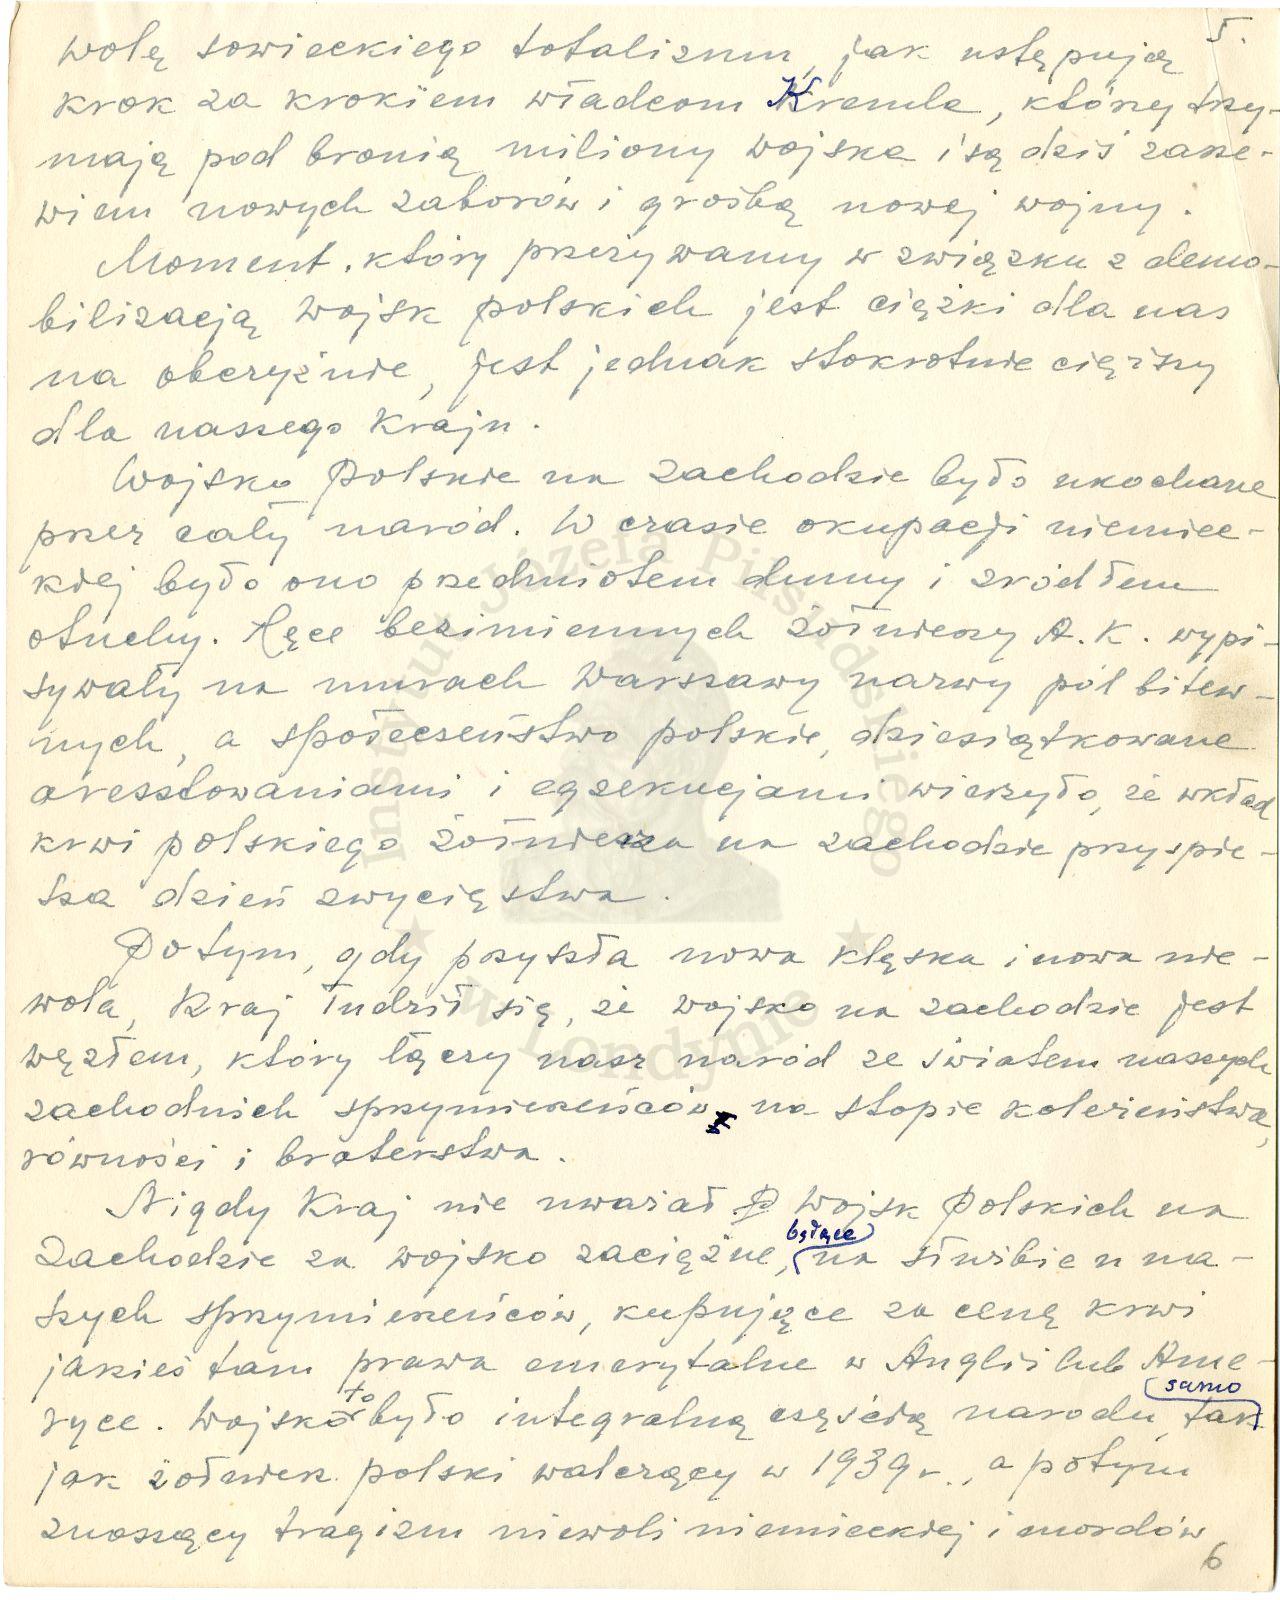 5.
wolę sowieckiego totalizmu, jak ustępują
krok za krokiem władcom Kremla, którzy trzy-
mają pod bronią miliony wojska i są dziś zarze-
wiem nowych zaborów i groźbą nowej wojny.
Moment, który przeżywamy w związku z demo-
bilizacją wojsk polskich jest ciężki dla nas
na obczyźnie, jest jednak stokrotnie cięższy
dla naszego Kraju.
Wojsko Polskie na zachodzie było ukochane
przez cały naród. W czasie okupacji niemiec-
kiej było ono przedmiotem dumy i źródłem
otuchy. Ręce bezimiennych żołnierzy A.K. wypi-
sywały na murach Warszawy nazwy pól bitew-
nych, a społeczeństwo polskie, dziesiątkowane
aresztowaniami i egzekucjami wierzyło, że wkład
krwi polskiego żołnierza na zachodzie przyspie-
sza dzień zwycięstwa.
Potym, gdy przyszła nowa klęska i nowa nie-
wola, Kraj łudził się, że wojsko na zachodzie jest
węzłem, który łączy nasz naród ze światem naszych
zachodnich sprzymierzeńców na stopie koleżeństwa,
równości i braterstwa.
Nigdy Kraj nie uważał P Wojsk Polskich na
Zachodzie za wojsko zaciężne, będące na służbie u na-
szych sprzymierzeńców, kupujące za cenę krwi
jakieś tam prawa emerytalne w Anglii lub Ame-
ryce. Wojsko to było integralną częścią narodu, tak samo
jak żołnierz polski walczący w 1939 r., a potym
znoszący tragizm niewoli niemieckiej i mordów
6
Instytut Józefa Piłsudskiego
w Londynie